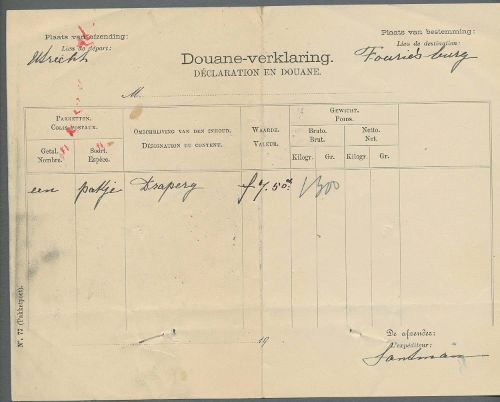 Plaats van afzending:
Lieu de départ:
Utrecht
Plaats van bestemming:
Lieu de destination:
Fouriesburg
Douane-verklaring.
DÉCLARATION EN DOUANE.
M.
PAKKETTEN.
COLIS POSTAUX.
OMSCHRIJVING VAN DEN INHOUD.
DÉSIGNATION DU CONTENT.
WAARDE.
VALEUR.
GEWICHT.
POIDS.
Getal.
Nombre.
Soort.
Espèce.
Bruto.
Brut.
Netto.
Net.
Kilogr. Gr. Kilogr. Gr.
een pakje Drapery f 7.50 1300
19
De afzender:
L'expéditeur:
N°. 77 (Pakketpost).